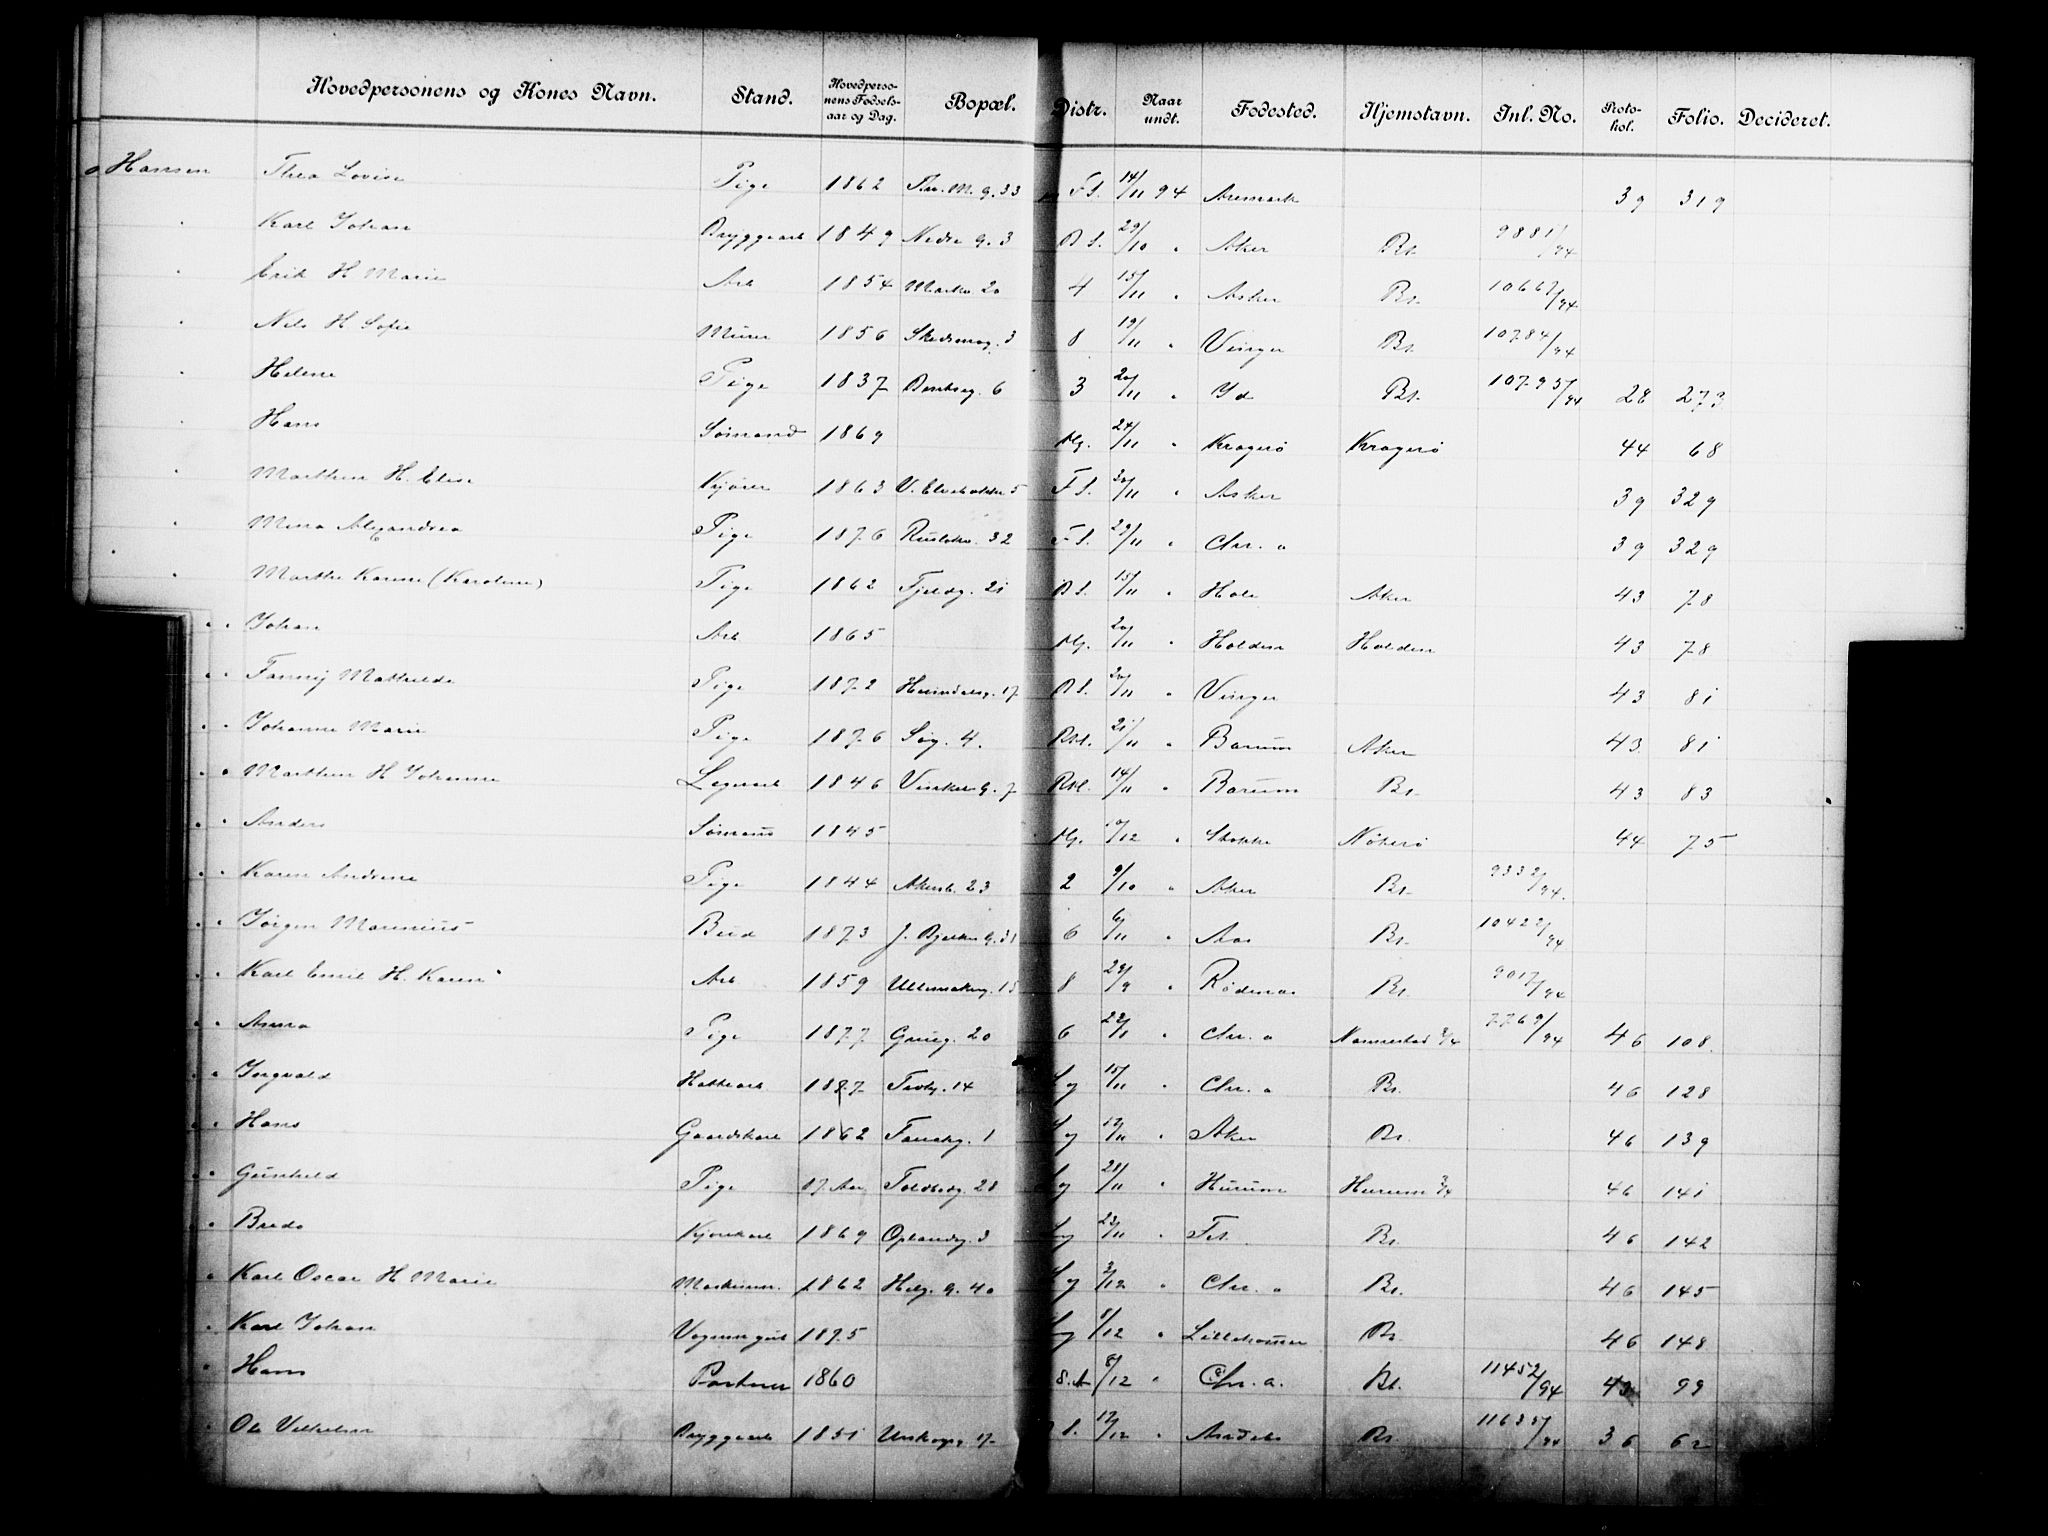 Hovedpersonens og Kones Navn. Stand. Hovedpersonens Fødselsaar og Dag. Bopæl. Distr. Naar undt. Fødested. Hjemstavn. Inl. No. Protokol. Folio. Decideret.
Hansen Thea Lovise Pige 1862 33 F S. 14/11 94 Aremark 39 319
" Karl Johan Bryggearb 1849 Nedre g. 3 B S. 29/10 " Aker Bt. 9881/94
" Erik H Marie Arb 1854 Markv 20 4 15/11 " Asker Bt. 10667/94
" Nils H Sofie Murer 1856 Skedsmog. 3 8 19/11 " Vinger Bt. 10784/94
" Helene Pige 1837 Bentseg. 6 3 20/11 " Id Bt. 10795/94 28 273
" Hans Sömand 1869 Mg. 24/11 " Kragerö Kragerö 44 68
" Marthin H. Elise Kjörer 1863 V. Elvebakke 5 F S. 30/11 " Asker 39 329
" Mina Alexandra Pige 1876 Ruselökv. 32 F S. 29/11 " Chr. a 39 329
" Marthe Karine (Karoline) Pige 1862 Fjeldg. 21 B S. 15/11 " Hole Aker 43 78
" " Johan Arb 1865 Mg. 20/11 " Holden Holden 43 78
" " Fanny Mathilde Pige 1872 Heimdalsg. 17 B S. 20/11 " Vinger 43 81
" " Johanne Marie Pige 1876 Søg. 4. 21/11 " Bærum Aker 43 81
" " Marthin H Johanne Lagerarb 1846 Vinkel g. 7 14/11 " Bærum Bt. 43 83
" " Anders Sömand 1845 Mg. /12 " Stokke Nöterö 44 75
" " Karen Andrine Pige 1844 Akersb. 23 2 9/10 " Aker Bt. 9332/94.
" " Jörgen Marinius Bud 1873 J. Bjelkes g. 31 6 6/11 " Aas Bt. 10422/94
" " Karl Emil H. Karen Arb 1859 Ullensakerg. 15 8 29/9 " Rödenes Bt. 9017/94
" " Anna Pige 1877 Grueg. 20 6 " Chr. a Nannestad 3/4 7769/94 46 108.
" " Ingvald Hattearb 1877 Tostg. 14 Sg 15/11 " Chr. a Bt. 46 128
" " Hans Gaardskarl 1862 1 Sg /11 " Aker Bt. 46 139
" " Gunhild Pige 17. Aar Toldbdg. 28 Sg 28/11 " Hurum Hurum 3/4 46 141
" " Bredo Kjörekarl 1869 Oplandsg. 3 Sg 23/11 " Bt. 46 142
" Karl Oscar H Marie Maskinm. 1862 Helg. g. 40 Sg 3/12 " Chr. a Bt. 46 145
" Karl Johan Vognmgut 1875 Sg 8/12 " Lillehammer Bt. 46 148
" Hans Portner 1860 S.A 8/12 " Chr. a. Bt. 11452/94 43 99
" Ole Vilhelm Bryggearb 1851 17 S. 17/12 " Andebu Bt. 11635/94 36 62